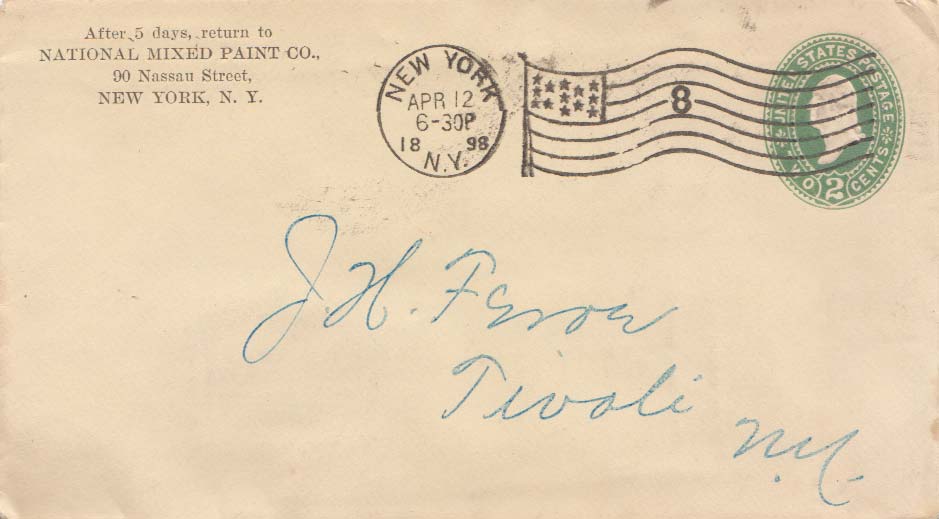 After 5 days, return to
NATIONAL MIXED PAINT CO.,
90 Nassau Street,
NEW YORK, N. Y.
NEW YORK
APR 12
6-30P
18 98
N.Y.
8
UNITED STATES POSTAGE
TWO 2 CENTS
J. H.
Tivoli
N.Y.